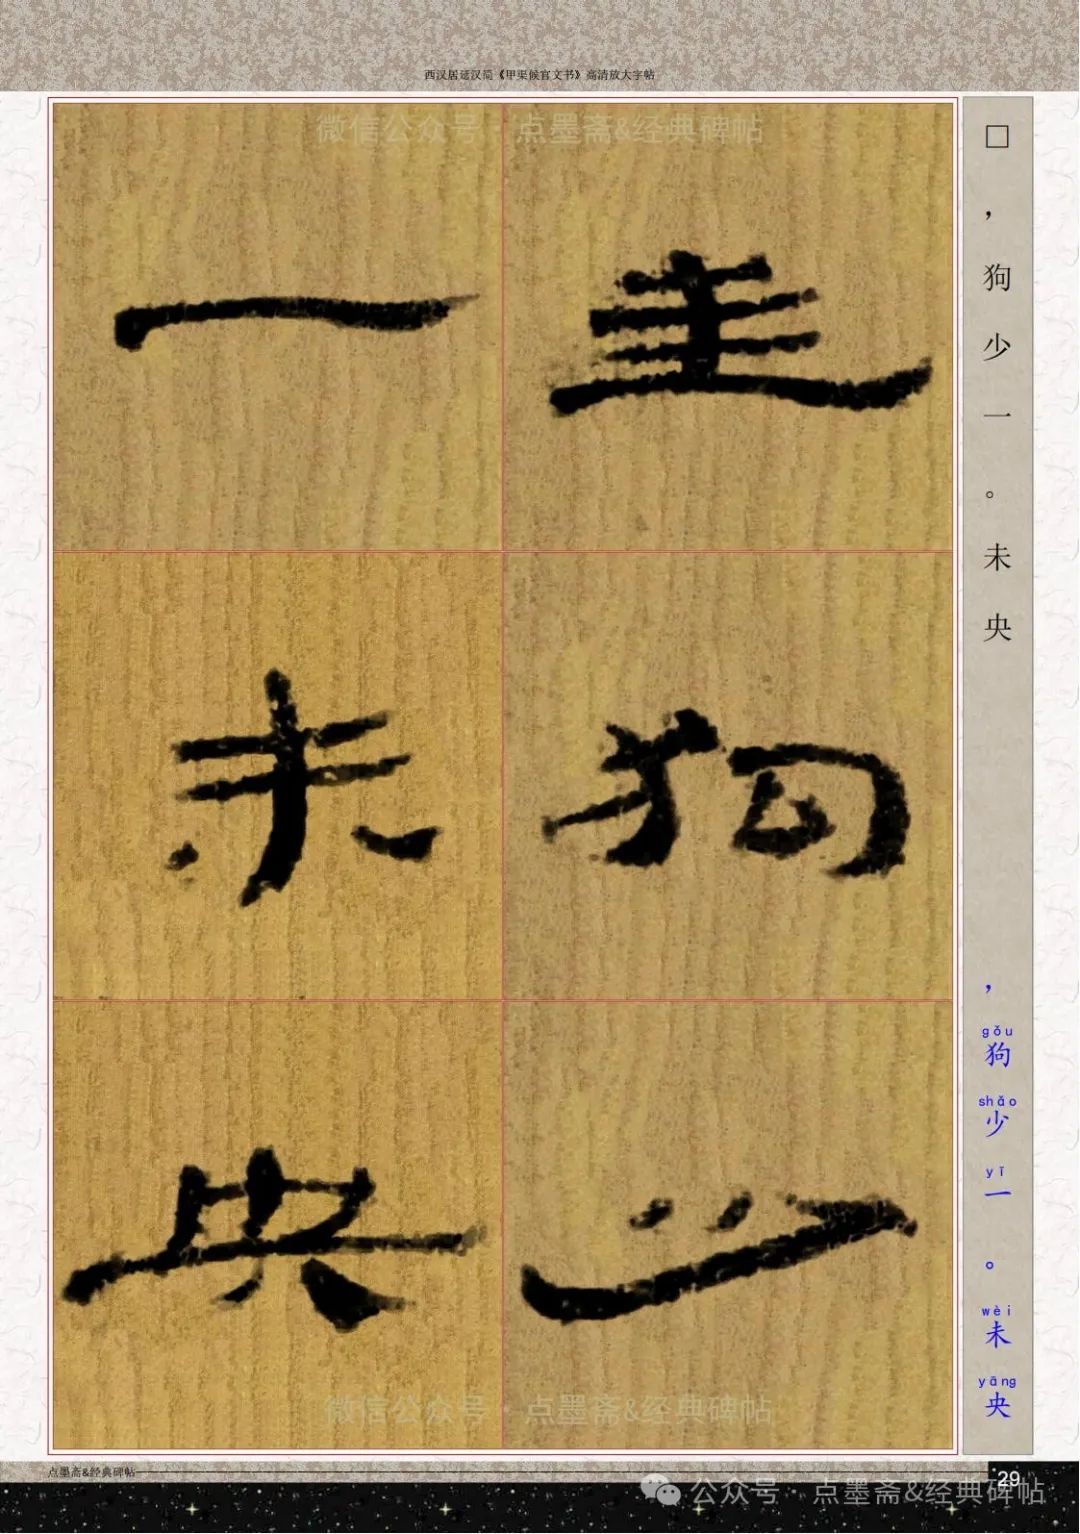 西汉居延汉简《甲渠候官文书》高清放大字帖
微信公众号·点墨斋&经典碑帖
□，狗少一。未央
狗少
一未央
，狗少一。未央
gǒu shǎo yī wèi yāng
微信公众号·点墨斋&经典碑帖
点墨斋&经典碑帖
29
公众号·点墨斋&经典碑帖